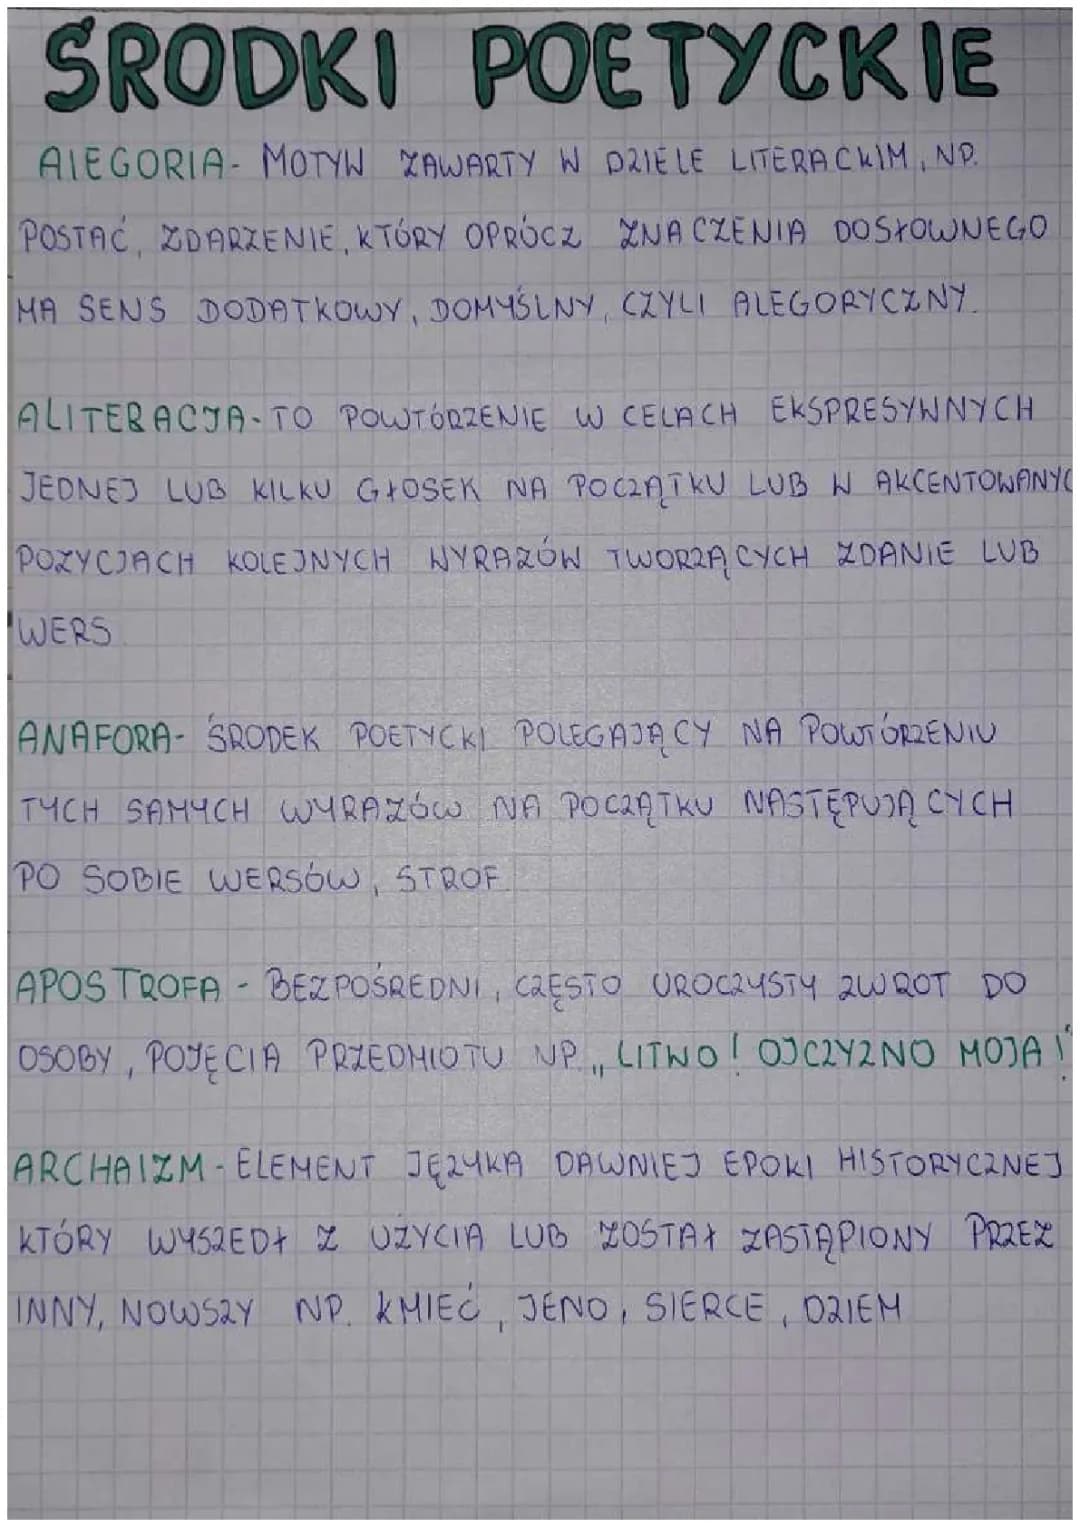 ŚRODKI POETYCKIE
AlEGORIA- MOTYW ZAWARTY W DZIELE LITERACKIM, NP.
POSTAĆ, ZDARZENIE, KTÓRY OPRÓCZ ZNACZENIA DOSŁOWNEGO
MA SENS DODATKOWY, DOMYŚLNY, CZYLI ALEGORYCZNY.
ALITERACJA- TO POWTÓRZENIE W CELACH EKSPRESYWNYCH
JEDNEJ LUB KILKU GŁOSEK NA POCZĄTKU LUB W AKCENTOWANYC
POZYCJACH KOLEJNYCH WYRAZÓW TWORZĄCYCH ZDANIE LUB
WERS.
ANAFORA- ŚRODEK POETYCKI POLEGAJĄCY NA POWTÓRZENIU
TYCH SAMYCH WYRAZÓW NA POCZĄTKU NASTĘPUJĄCYCH
PO SOBIE WERSÓW, STROF.
APOSTROFA - BEZPOŚREDNI, CZĘSTO UROCZYSTY ZWROT DO
OSOBY, POJĘCIA PRZEDMIOTU NP. „LITWO! OJCZYZNO MOJA!"
ARCHAIZM - ELEMENT JĘZYKA DAWNIEJ EPOKI HISTORYCZNEJ
KTÓRY WYSZEDŁ Z UŻYCIA LUB ZOSTAŁ ZASTĄPIONY PRZEZ
INNY, NOWSZY NP. KMIEĆ, JENO, SIERCE, DZIEM